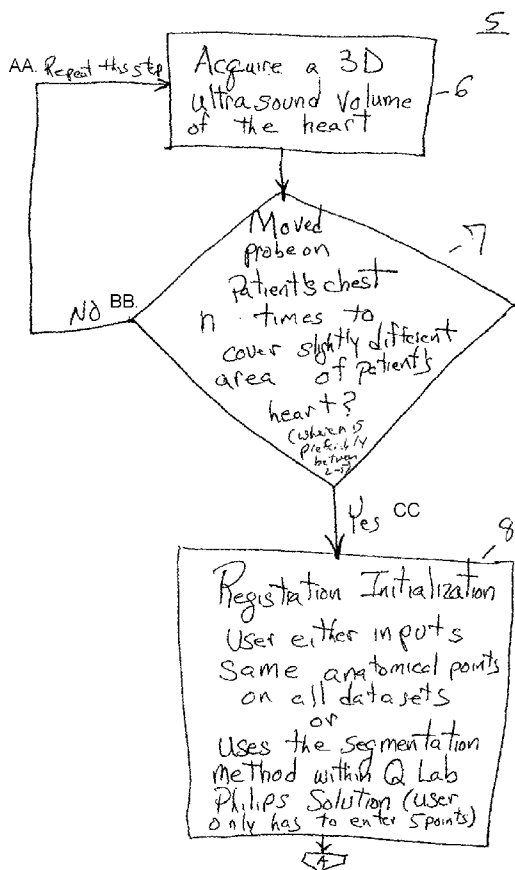 5
AA. Repeat this step
Acquire a 3D
ultrasound volume
of the heart
6
7
Moved
probe on
Patient's chest
n times to
cover slightly different
area of patient's
heart?
(where n is
preferably
between
2-5)
NO BB.
Yes CC
8
Registration Initialization
User either inputs
same anatomical points
on all datasets
or
Uses the segmentation
method within Q Lab
Philips Solution (user
only has to enter 5 points)
A